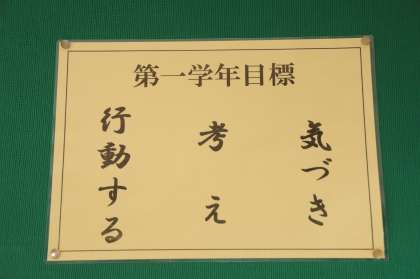 第一学年目標
気づき
考え
行動する